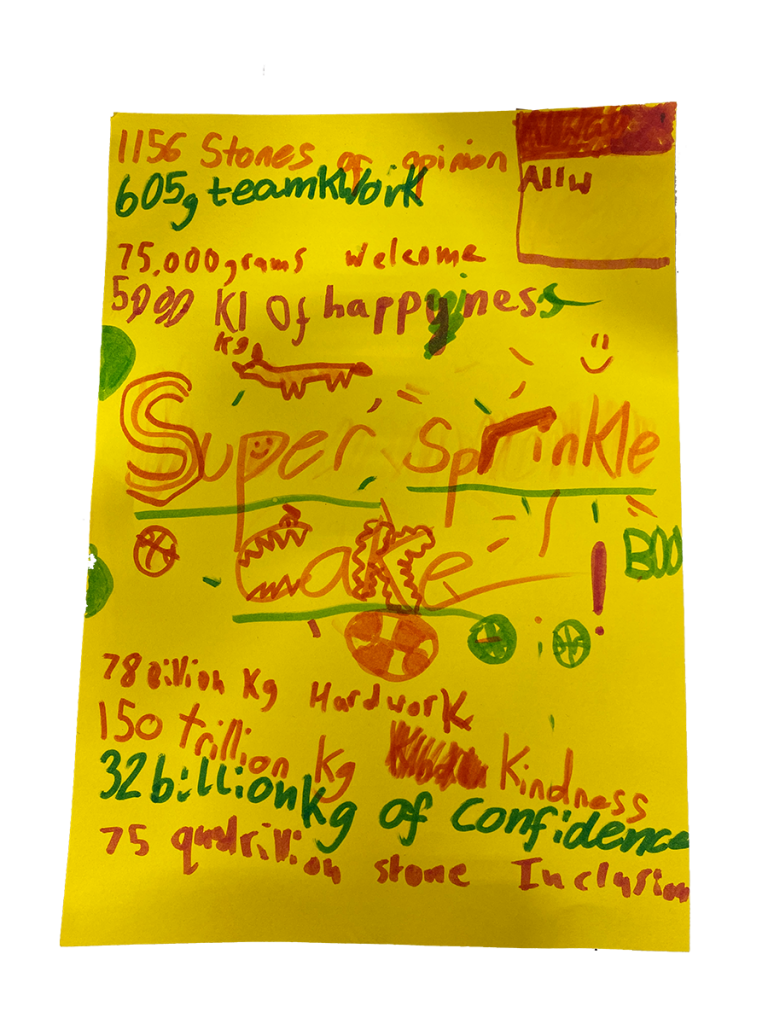 1156 Stones of opinion
605g teamkwork
Allw
75.000grams welcome
5000 Kl Of happyiness
kg
Super Sprinkle
Cake!
BOO
78 Billion Kg Hardwork
150 trillion kg Kindness
32 billion Kg of Confidence
75 quadrillion stone Inclusion